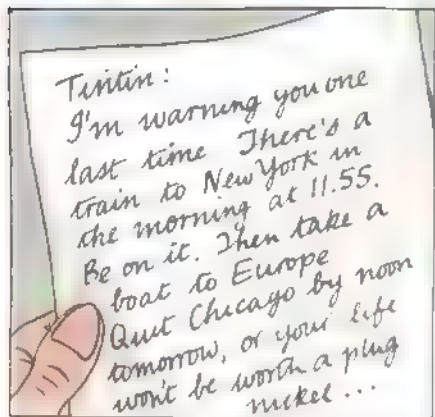 Tintin:
I'm warning you one
last time There's a
train to New York in
the morning at 11.55.
Be on it. Then take a
boat to Europe
Quit Chicago by noon
tomorrow, or your life
won't be worth a plug
nickel...